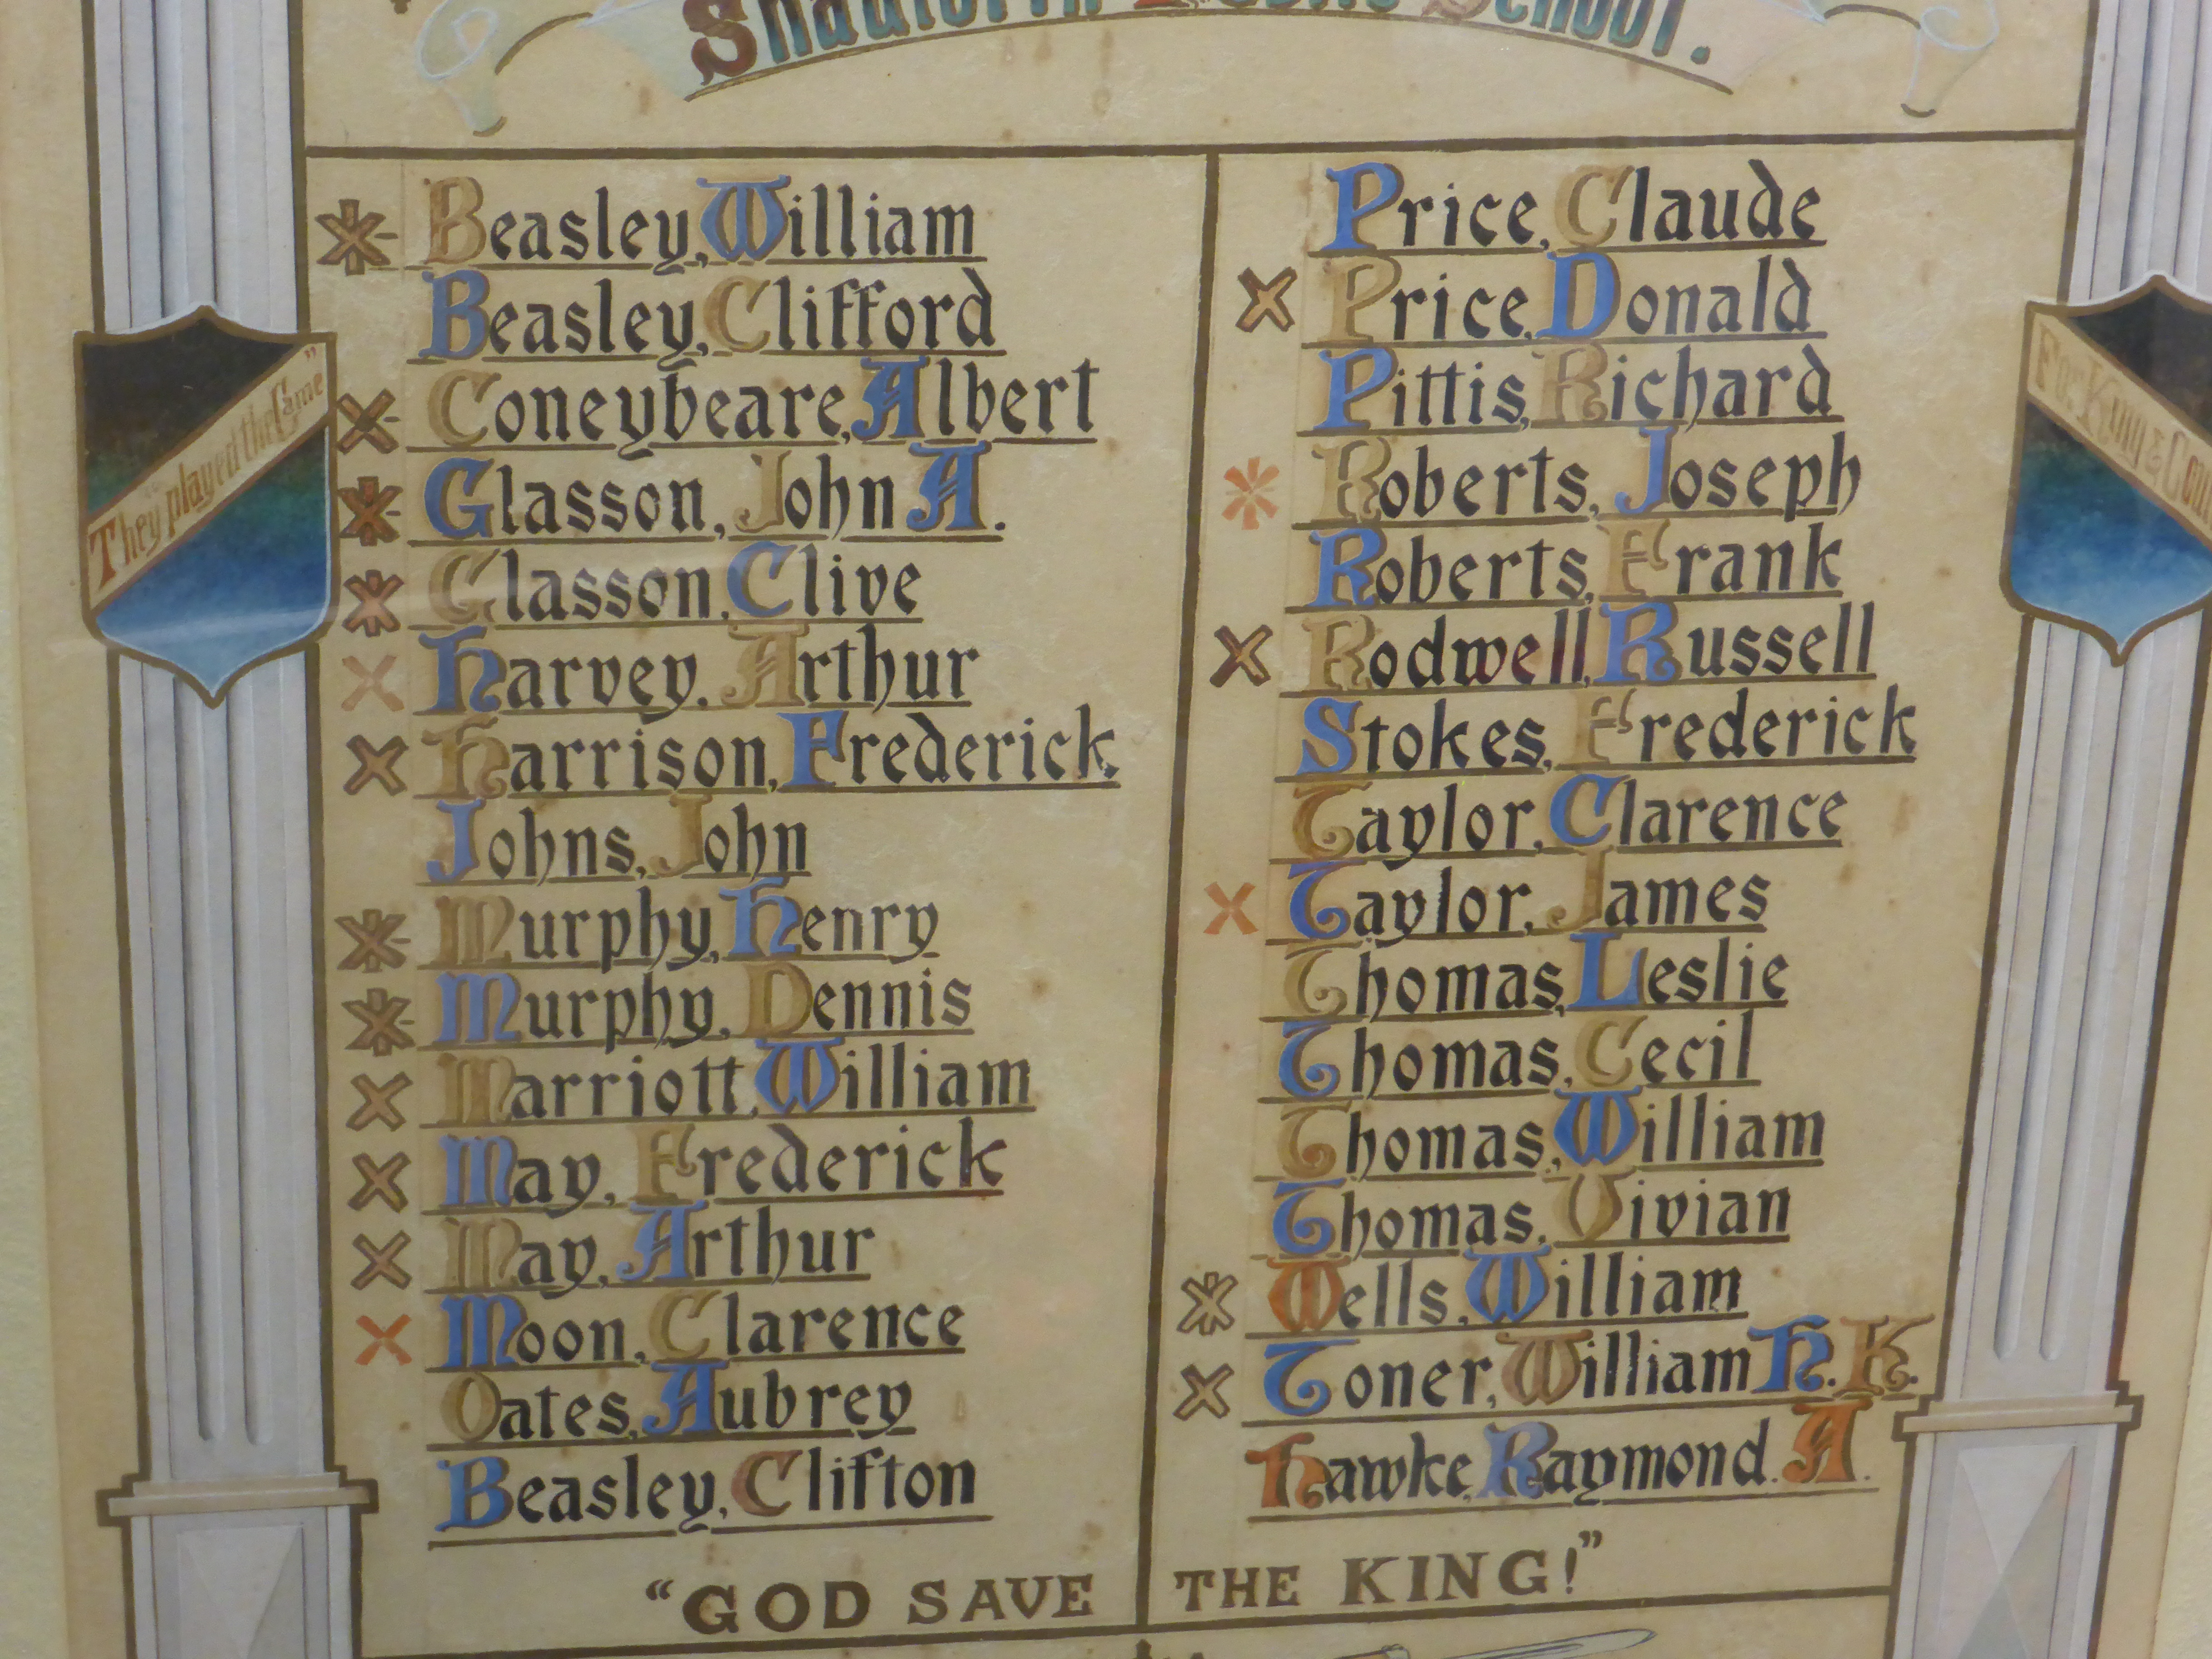 Shadforth Public School.
Beasley, William
Beasley, Clifford
Coneybeare, Albert
Glasson, John A.
Glasson, Clive
Harvey, Arthur
Harrison, Frederick.
Johns, John
Murphy, Henry
Murphy, Dennis
Marriott, William
May, Frederick
May, Arthur
Moon, Clarence
Oates, Aubrey
Beasley, Clifton
Price, Claude
Price, Donald
Pittis, Richard
Roberts, Joseph
Roberts, Frank
Rodwell, Russell
Stokes, Frederick
Taylor, Clarence
Taylor, James
Thomas, Leslie
Thomas, Cecil
Thomas, William
Thomas, Vivian
Wells, William
Toner, William H. K.
Hawke, Raymond. A.
"GOD SAVE THE KING!"
"They played the Game"
For King &